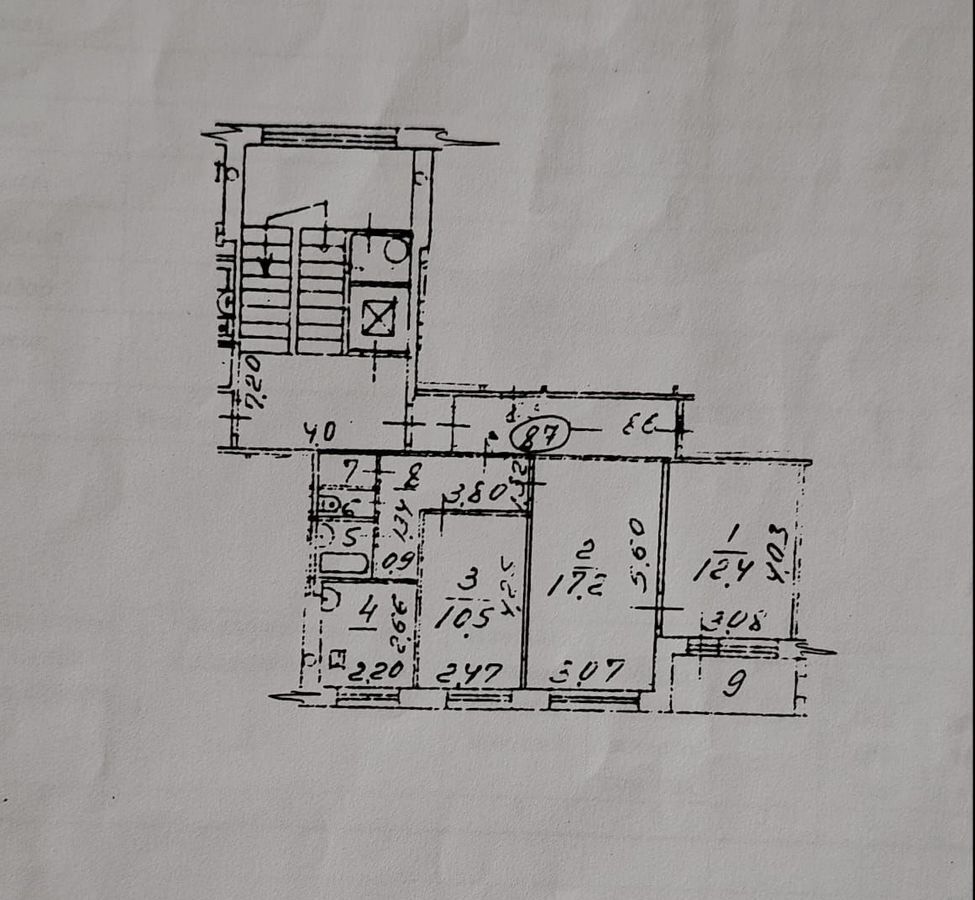 7.20
40
87
33
7
8
3.80
1.32
6
5
1.34
0.9
4
2.66
2.20
3
10.5
4.25
2.47
2
17.2
5.60
3.07
1
12.4
4.03
3.08
9